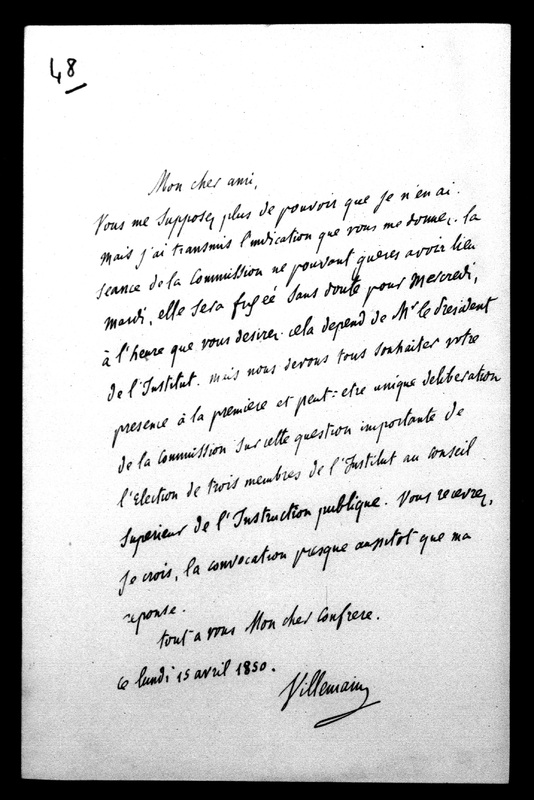 48
Mon cher ami,
Vous me supposez plus de pouvoir que je n'en ai.
mais j'ai transmis l'indication que vous me donnez. la
seance de la Commission ne pouvant gueres avoir lieu
mardi, elle sera fixée sans doute pour Mercredi,
à l'heure que vous desirez. cela depend de Mr le President
de l'Institut. mais nous devons tous souhaiter votre
presence à la premiere et peut-etre unique deliberation
de la Commission sur cette question importante de
l'Election de trois membres de l'Institut au conseil
Superieur de l'Instruction publique. Vous recevrez,
je crois, la convocation presque aussitot que ma
reponse.
tout a vous Mon cher Confrere.
ce lundi 15 avril 1850.
Villemain